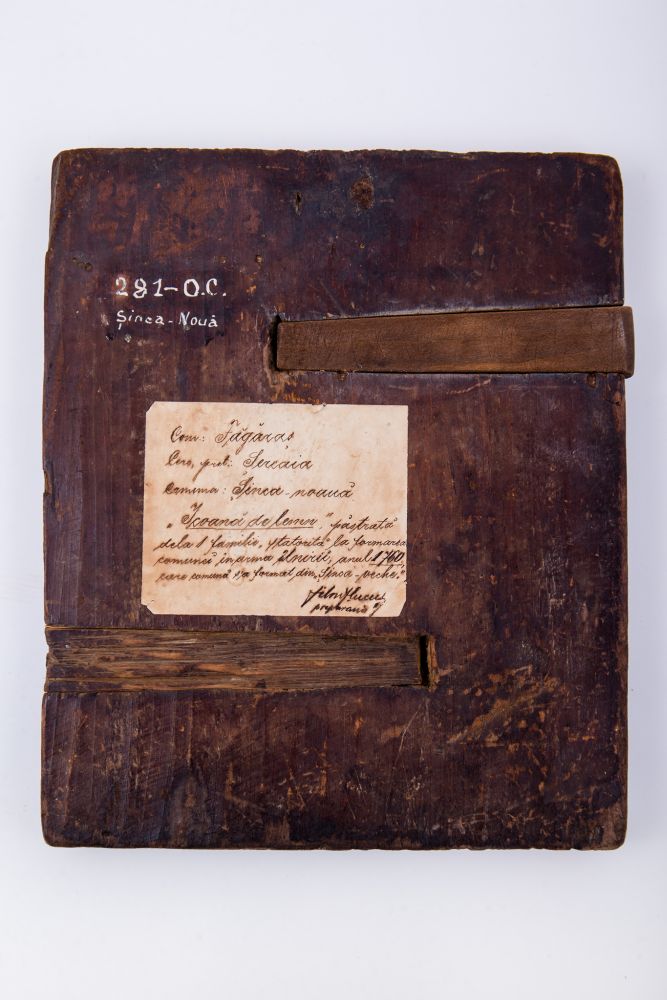 281-O.C.
Șinca-Nouă
Com: Făgăraș
Cerc. pret: Sercaia
Comuna: Șinca-nouă
"Icoană de lemn," păstrată
dela 1 familie, statorită la formarea
comunei în urma anul 1760,
care comună s'a format din "Șinca-veche".